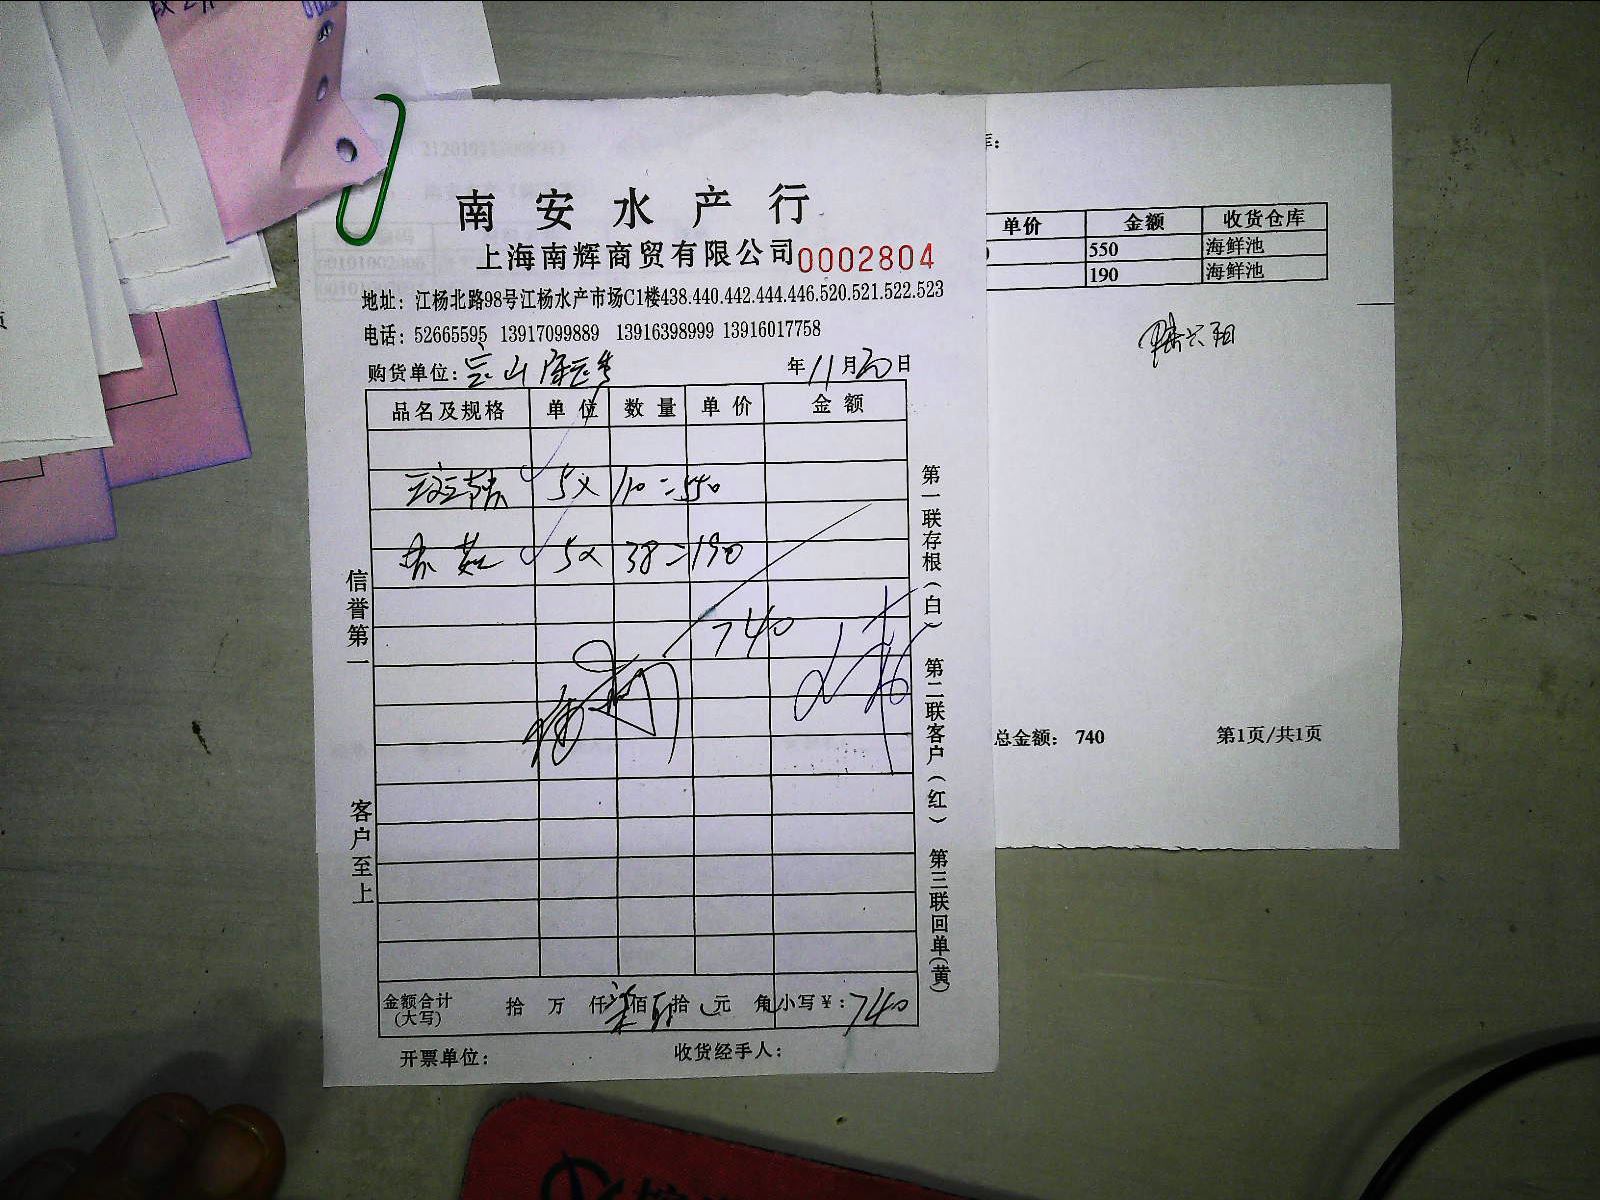 南安水产行
上海南辉商贸有限公司 0002804
地址：江杨北路98号江杨水产市场C1楼438.440.442.444.446.520.521.522.523
电话：52665595 13917099889 13916398999 13916017758
购货单位：宝山 年11月20日
品名及规格 单位 数量 单价 金额
5× 110=550
5× 38=190
740
金额合计(大写) 拾 万 仟柒佰肆拾 元 角 小写¥：740
开票单位： 收货经手人：
信誉第一 客户至上
第一联存根(白) 第二联客户(红) 第三联回单(黄)
库：
单价 金额 收货仓库
550 海鲜池
190 海鲜池
总金额： 740 第1页/共1页